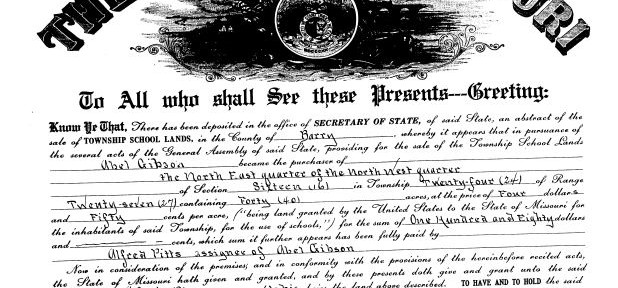 THE
URI
To All who shall See these Presents---Greeting:
Know Ye That, There has been deposited in the office of SECRETARY OF STATE, of said State, an abstract of the
sale of TOWNSHIP SCHOOL LANDS, in the County of Barry, whereby it appears that in pursuance of
the several acts of the General Assembly of said State, providing for the sale of the Township School Lands
Abel Gibson became the purchaser of
the North East quarter of the North West quarter
of Section Sixteen (16) in Township Twenty-four (24) of Range
Twenty-seven (27) containing Forty (40) acres, at the price of Four dollars
and Fifty cents per acre, ("being land granted by the United States to the State of Missouri for
the inhabitants of said Township, for the use of schools,") for the sum of One Hundred and Eighty dollars
and cents, which sum it further appears has been fully paid by
Alfred Pitts assignee of Abel Gibson
Now in consideration of the premises; and in conformity with the provisions of the hereinbefore recited acts,
the State of Missouri hath given and granted, and by these presents doth give and grant unto the said
the land above described. TO HAVE AND TO HOLD the said